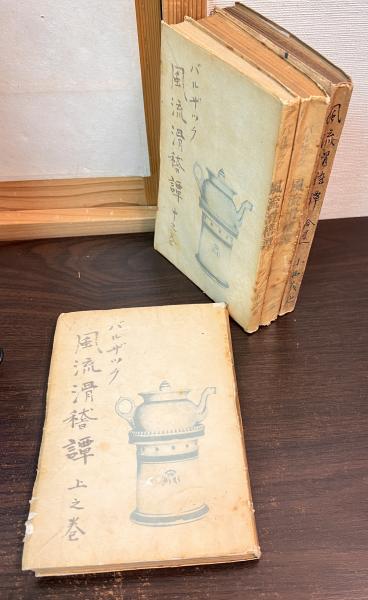 バルザック
風流滑稽譚 中之巻
風流滑稽譚
風流滑稽譚
バルザック
風流滑稽譚
上之巻